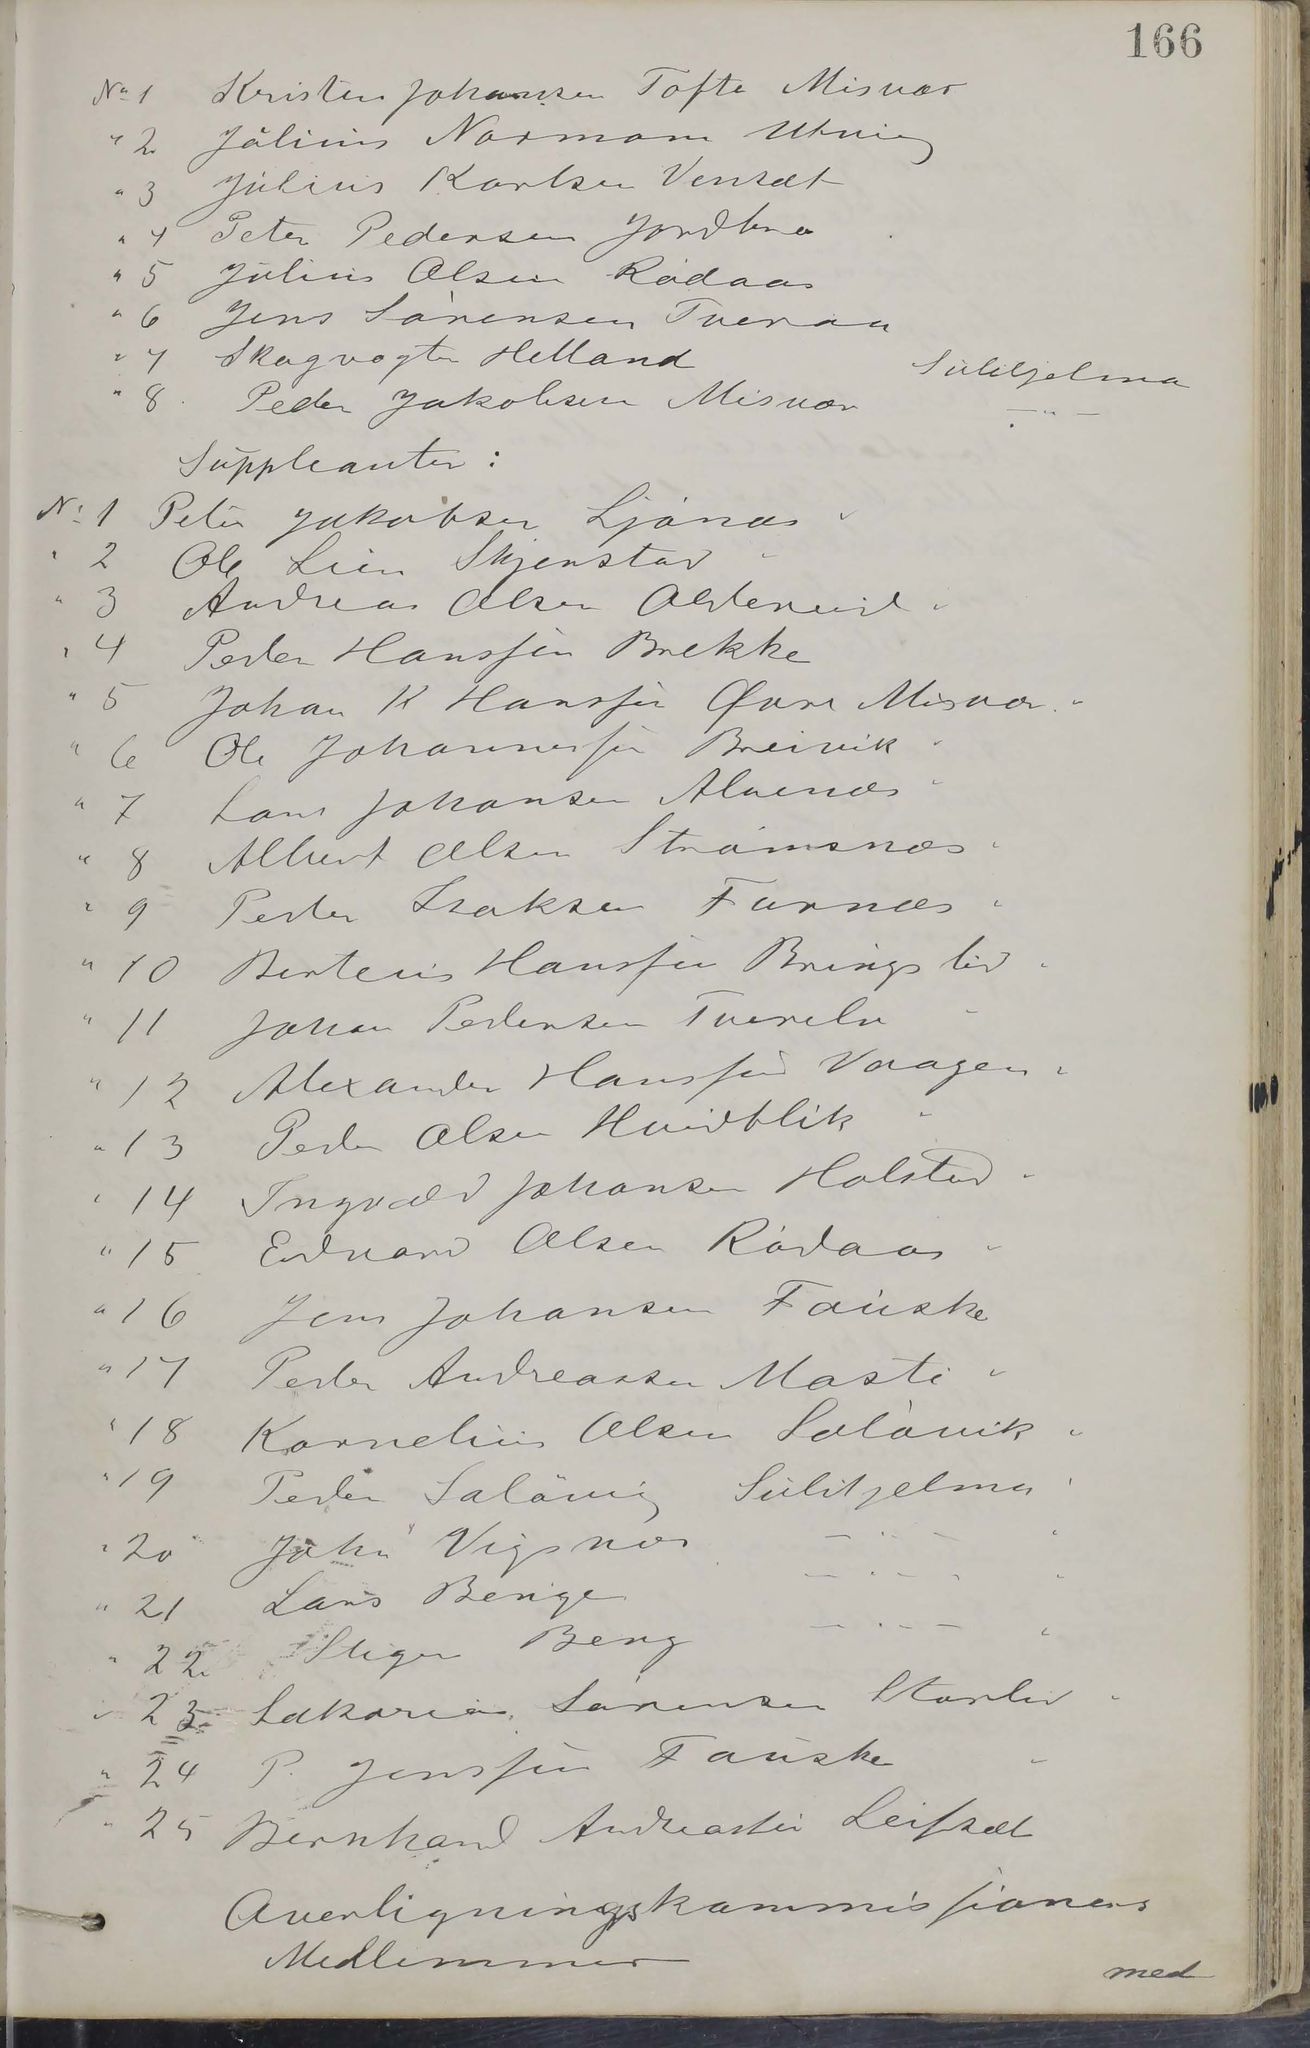 166
No 1 Kristen Johansen Tofte Misvær
" 2 Julius Normann Utvig
" 3 Julius Karlsen Vensæt
" 4 Peter Pedersen Jordbro
" 5 Julius Olsen Rødaas
" 6 Jens Sørensen Tveraa
" 7 Skogvogter Helland Sulitjelma
" 8 Peder Jakobsen Misvær — " —
Suppleanter:
No 1 Peter Jakobsen Ljønæs "
" 2 Ole Lien Skjenstad "
" 3 Andreas Olsen Oldereid "
" 4 Peder Hanssen Brekke
" 5 Johan K Hanssen Øvre Misvær "
" 6 Ole Johannessen Breivik "
" 7 Lars Johansen Alvenæs "
" 8 Albert Olsen Strømsnæs "
" 9 Peder Isaksen Furnæs "
" 10 Berteus Hanssen Bringsli "
" 11 Johan Pedersen Tverelv "
" 12 Alexander Hanssen Vaagen "
" 13 Peder Olsen Hvidblik "
" 14 Ingvald Johansen Holstad "
" 15 Edvard Olsen Rødaas "
" 16 Jens Johansen Fauske
" 17 Peder Andreassen Masti "
" 18 Kornelius Olsen Soløivik "
" 19 Peder Saløivig Sulitjelma "
" 20 John Vigsnæs — " — "
" 21 Lars Berge — " — "
" 22 Stiger Berg — " — "
" 23 Sakarias Sørensen Storli "
" 24 P. Jenssen Fauske "
" 25 Bernhard Andreassen Leifsæt
Overligningskommissioners
Medlemmer
med